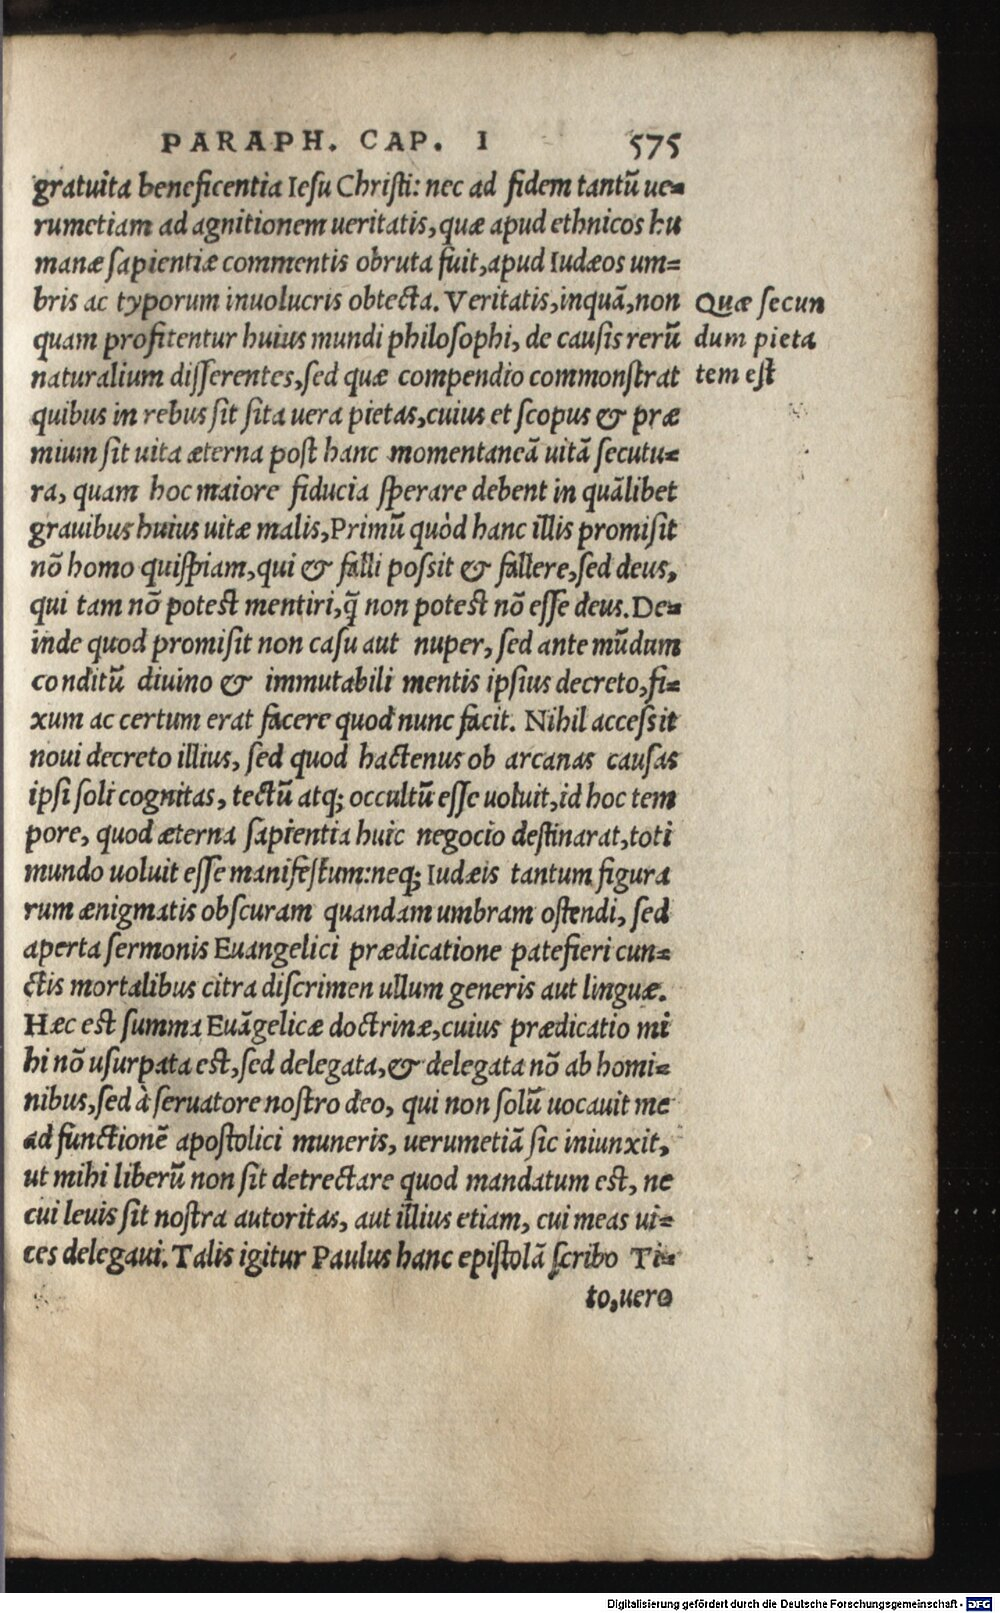 PARAPH. CAP. I 575
gratuita beneficentia Iesu Christi: nec ad fidem tantũ ue=
rumetiam ad agnitionem ueritatis, quæ apud ethnicos hu
manæ sapientiæ commentis obruta fuit, apud Iudæos um=
bris ac typorum inuolucris obtecta. Veritatis, inquã, non
quam profitentur huius mundi philosophi, de causis rerũ
naturalium disserentes, sed quæ compendio commonstrat
quibus in rebus sit sita uera pietas, cuius et scopus & præ
mium sit uita æterna post hanc momentaneã uitã secutu=
ra, quam hoc maiore fiducia sperare debent in quãlibet
grauibus huius uitæ malis, Primũ quòd hanc illis promisit
nõ homo quispiam, qui & falli possit & fallere, sed deus,
qui tam nõ potest mentiri, q̃ non potest nõ esse deus. De=
inde quod promisit non casu aut nuper, sed ante mũdum
conditũ diuino & immutabili mentis ipsius decreto, fi=
xum ac certum erat facere quod nunc facit. Nihil accessit
noui decreto illius, sed quod hactenus ob arcanas causas
ipsi soli cognitas, tectũ atq; occultũ esse uoluit, id hoc tem
pore, quod æterna sapientia huic negocio destinarat, toti
mundo uoluit esse manifestum: neq; Iudæis tantum figura
rum ænigmatis obscuram quandam umbram ostendi, sed
aperta sermonis Euangelici prædicatione patefieri cun=
ctis mortalibus citra discrimen ullum generis aut linguæ.
Hæc est summa Euãgelicæ doctrinæ, cuius prædicatio mi
hi nõ usurpata est, sed delegata, & delegata nõ ab homi=
nibus, sed à seruatore nostro deo, qui non solũ uocauit me
ad functionẽ apostolici muneris, uerumetiã sic iniunxit,
ut mihi liberũ non sit detrectare quod mandatum est, ne
cui leuis sit nostra autoritas, aut illius etiam, cui meas ui=
ces delegaui. Talis igitur Paulus hanc epistolã scribo Ti=
to, uero
Quæ secun
dum pieta
tem est
Digitalisierung gefördert durch die Deutsche Forschungsgemeinschaft - DFG